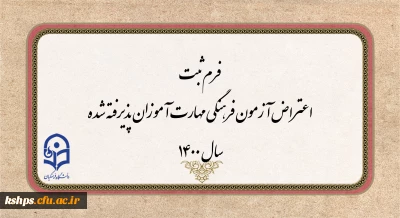 فرم ثبت
اعتراض آزمون فرهنگی مهارت آموزان پذیرفته شده
سال ۱۴۰۰
دانشگاه فرهنگیان
kshps.cfu.ac.ir